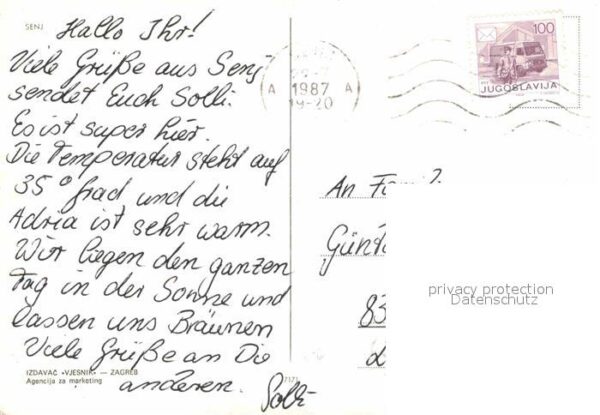 SENJ
Hallo Ihr!
Viele Grüße aus Senj
sendet Euch Solli.
Es ist super hier.
Die Temperatur steht auf
35° Grad und die
Adria ist sehr warm.
Wir liegen den ganzen
Tag in der Sonne und
lassen uns Bräunen
Viele Grüße an Die
anderen. Solli
IZDAVAČ «VJESNIK» — ZAGREB
Agencija za marketing
A 1987 A
19-20
100
JUGOSLAVIJA
An
83
privacy protection
Datenschutz